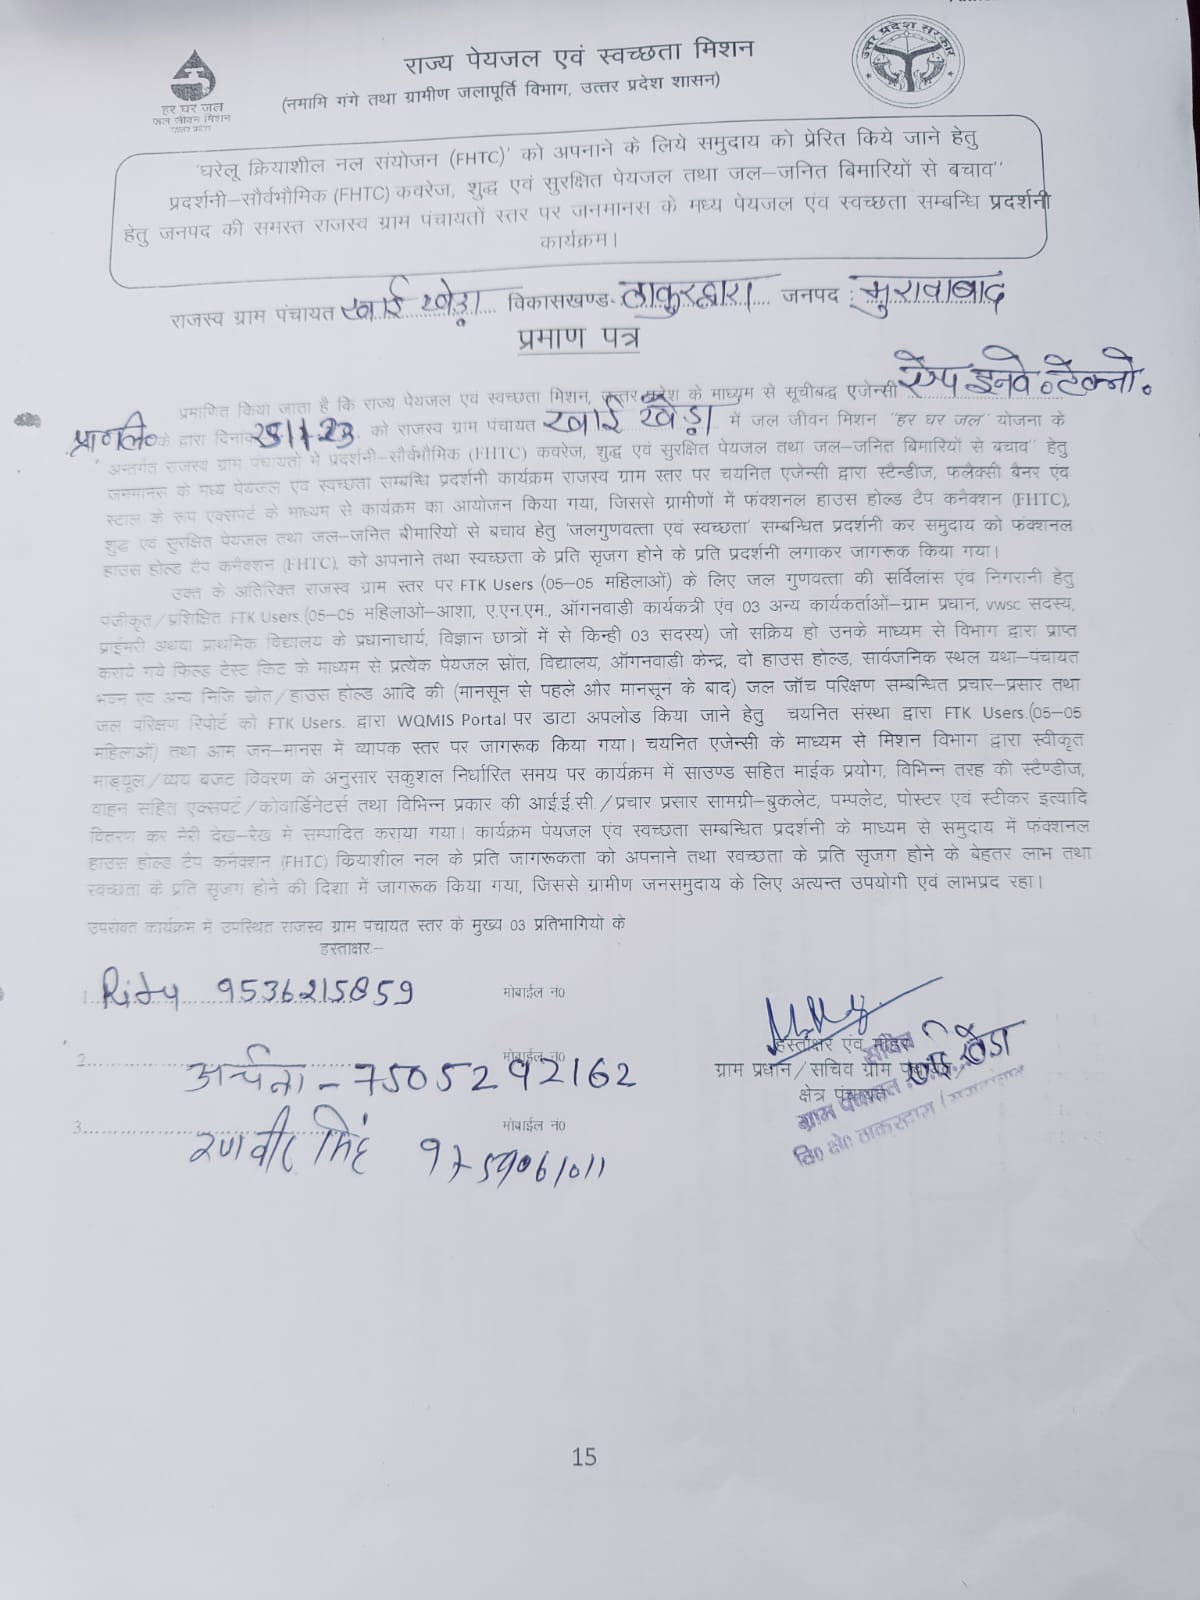 राज्य पेयजल एवं स्वच्छता मिशन
(नमामि गंगे तथा ग्रामीण जलापूर्ति विभाग, उत्तर प्रदेश शासन)
हर घर जल
जल जीवन मिशन
उत्तर प्रदेश
उत्तर प्रदेश सरकार
'घरेलू क्रियाशील नल संयोजन (FHTC)' को अपनाने के लिये समुदाय को प्रेरित किये जाने हेतु
प्रदर्शनी–सौर्वभौमिक (FHTC) कवरेज, शुद्ध एवं सुरक्षित पेयजल तथा जल–जनित बिमारियों से बचाव"
हेतु जनपद की समस्त राजस्व ग्राम पंचायतों स्तर पर जनमानस के मध्य पेयजल एंव स्वच्छता सम्बन्धि प्रदर्शनी
कार्यक्रम।
राजस्व ग्राम पंचायत खाई खेड़ा विकासखण्ड- ठाकुरद्वारा जनपद : मुरादाबाद
प्रमाण पत्र
प्रमाणित किया जाता है कि राज्य पेयजल एवं स्वच्छता मिशन, उत्तर प्रदेश के माध्यम से सूचीबद्ध एजेन्सी इनवे. टेक्नो.
प्रा०लि० के द्वारा दिनांक को राजस्व ग्राम पंचायत खाई खेड़ा में जल जीवन मिशन "हर घर जल" योजना के
अन्तर्गत राजस्व ग्राम पंचायतों में प्रदर्शनी–सौर्वभौमिक (FHTC) कवरेज, शुद्ध एवं सुरक्षित पेयजल तथा जल–जनित बिमारियों से बचाव" हेतु
जनमानस के मध्य पेयजल एंव स्वच्छता सम्बन्धि प्रदर्शनी कार्यक्रम राजस्व ग्राम स्तर पर चयनित एजेन्सी द्वारा स्टैन्डीज, फलैक्सी बैनर एंव
स्टाल के रूप एक्सपर्ट के माध्यम से कार्यक्रम का आयोजन किया गया, जिससे ग्रामीणों में फंक्शनल हाउस होल्ड टैप कनैक्शन (FHTC),
शुद्ध एवं सुरक्षित पेयजल तथा जल–जनित बीमारियों से बचाव हेतु 'जलगुणवत्ता एवं स्वच्छता' सम्बन्धित प्रदर्शनी कर समुदाय को फंक्शनल
हाउस होल्ड टैप कनैक्शन (FHTC), को अपनाने तथा स्वच्छता के प्रति सृजग होने के प्रति प्रदर्शनी लगाकर जागरूक किया गया।
उक्त के अतिरिक्त राजस्व ग्राम स्तर पर FTK Users (05–05 महिलाओं) के लिए जल गुणवत्ता की सर्विलांस एंव निगरानी हेतु
पंजीकृत/प्रशिक्षित FTK Users.(05–05 महिलाओं–आशा, ए.एन.एम., ऑगनवाडी कार्यकत्री एंव 03 अन्य कार्यकर्ताओं–ग्राम प्रधान, vwsc सदस्य,
प्राईमरी अथवा प्राथमिक विद्यालय के प्रधानाचार्य, विज्ञान छात्रों में से किन्ही 03 सदस्य) जो सक्रिय हो उनके माध्यम से विभाग द्वारा प्राप्त
कराये गये फिल्ड टेस्ट किट के माध्यम से प्रत्येक पेयजल स्रोंत, विद्यालय, ऑगनवाडी केन्द्र, दो हाउस होल्ड, सार्वजनिक स्थल यथा–पंचायत
भवन एवं अन्य निजि स्रोत/हाउस होल्ड आदि की (मानसून से पहले और मानसून के बाद) जल जॉच परिक्षण सम्बन्धित प्रचार–प्रसार तथा
जल परिक्षण रिपोर्ट को FTK Users. द्वारा WQMIS Portal पर डाटा अपलोड किया जाने हेतु चयनित संस्था द्वारा FTK Users.(05–05
महिलाओं) तथा आम जन–मानस में व्यापक स्तर पर जागरूक किया गया। चयनित एजेन्सी के माध्यम से मिशन विभाग द्वारा स्वीकृत
माड्यूल/व्यय बजट विवरण के अनुसार सकुशल निर्धारित समय पर कार्यक्रम में साउण्ड सहित माईक प्रयोग, विभिन्न तरह की स्टैण्डीज,
वाहन सहित एक्सपर्ट/कोवार्डिनेटर्स तथा विभिन्न प्रकार की आई.ई.सी./प्रचार प्रसार सामग्री–बुकलेट, पम्पलेट, पोस्टर एवं स्टीकर इत्यादि
वितरण कर मेरी देख–रेख में सम्पादित कराया गया। कार्यक्रम पेयजल एंव स्वच्छता सम्बन्धित प्रदर्शनी के माध्यम से समुदाय में फंक्शनल
हाउस होल्ड टैप कनैक्शन (FHTC) कियाशील नल के प्रति जागरूकता को अपनाने तथा स्वच्छता के प्रति सृजग होने के बेहतर लाभ तथा
स्वच्छता के प्रति सृजग होने की दिशा में जागरूक किया गया, जिससे ग्रामीण जनसमुदाय के लिए अत्यन्त उपयोगी एवं लाभप्रद रहा।
उपरोक्त कार्यक्रम में उपस्थित राजस्व ग्राम पंचायत स्तर के मुख्य 03 प्रतिभागियों के
हस्ताक्षर:–
1. Ritu 9536215859 मोबाईल नं0
2. मोबाईल नं0
अर्चना – 7505292162
3. मोबाईल नं0
रणवीर सिंह 9759061011
हस्ताक्षर एंव मोहर
सचिव
ग्राम प्रधान/सचिव ग्राम पंचायत खाई खेडा
क्षेत्र पंचायत
ग्राम पंचायत
वि० क्षे० ठाकुरद्वारा (मुरादाबाद)
15